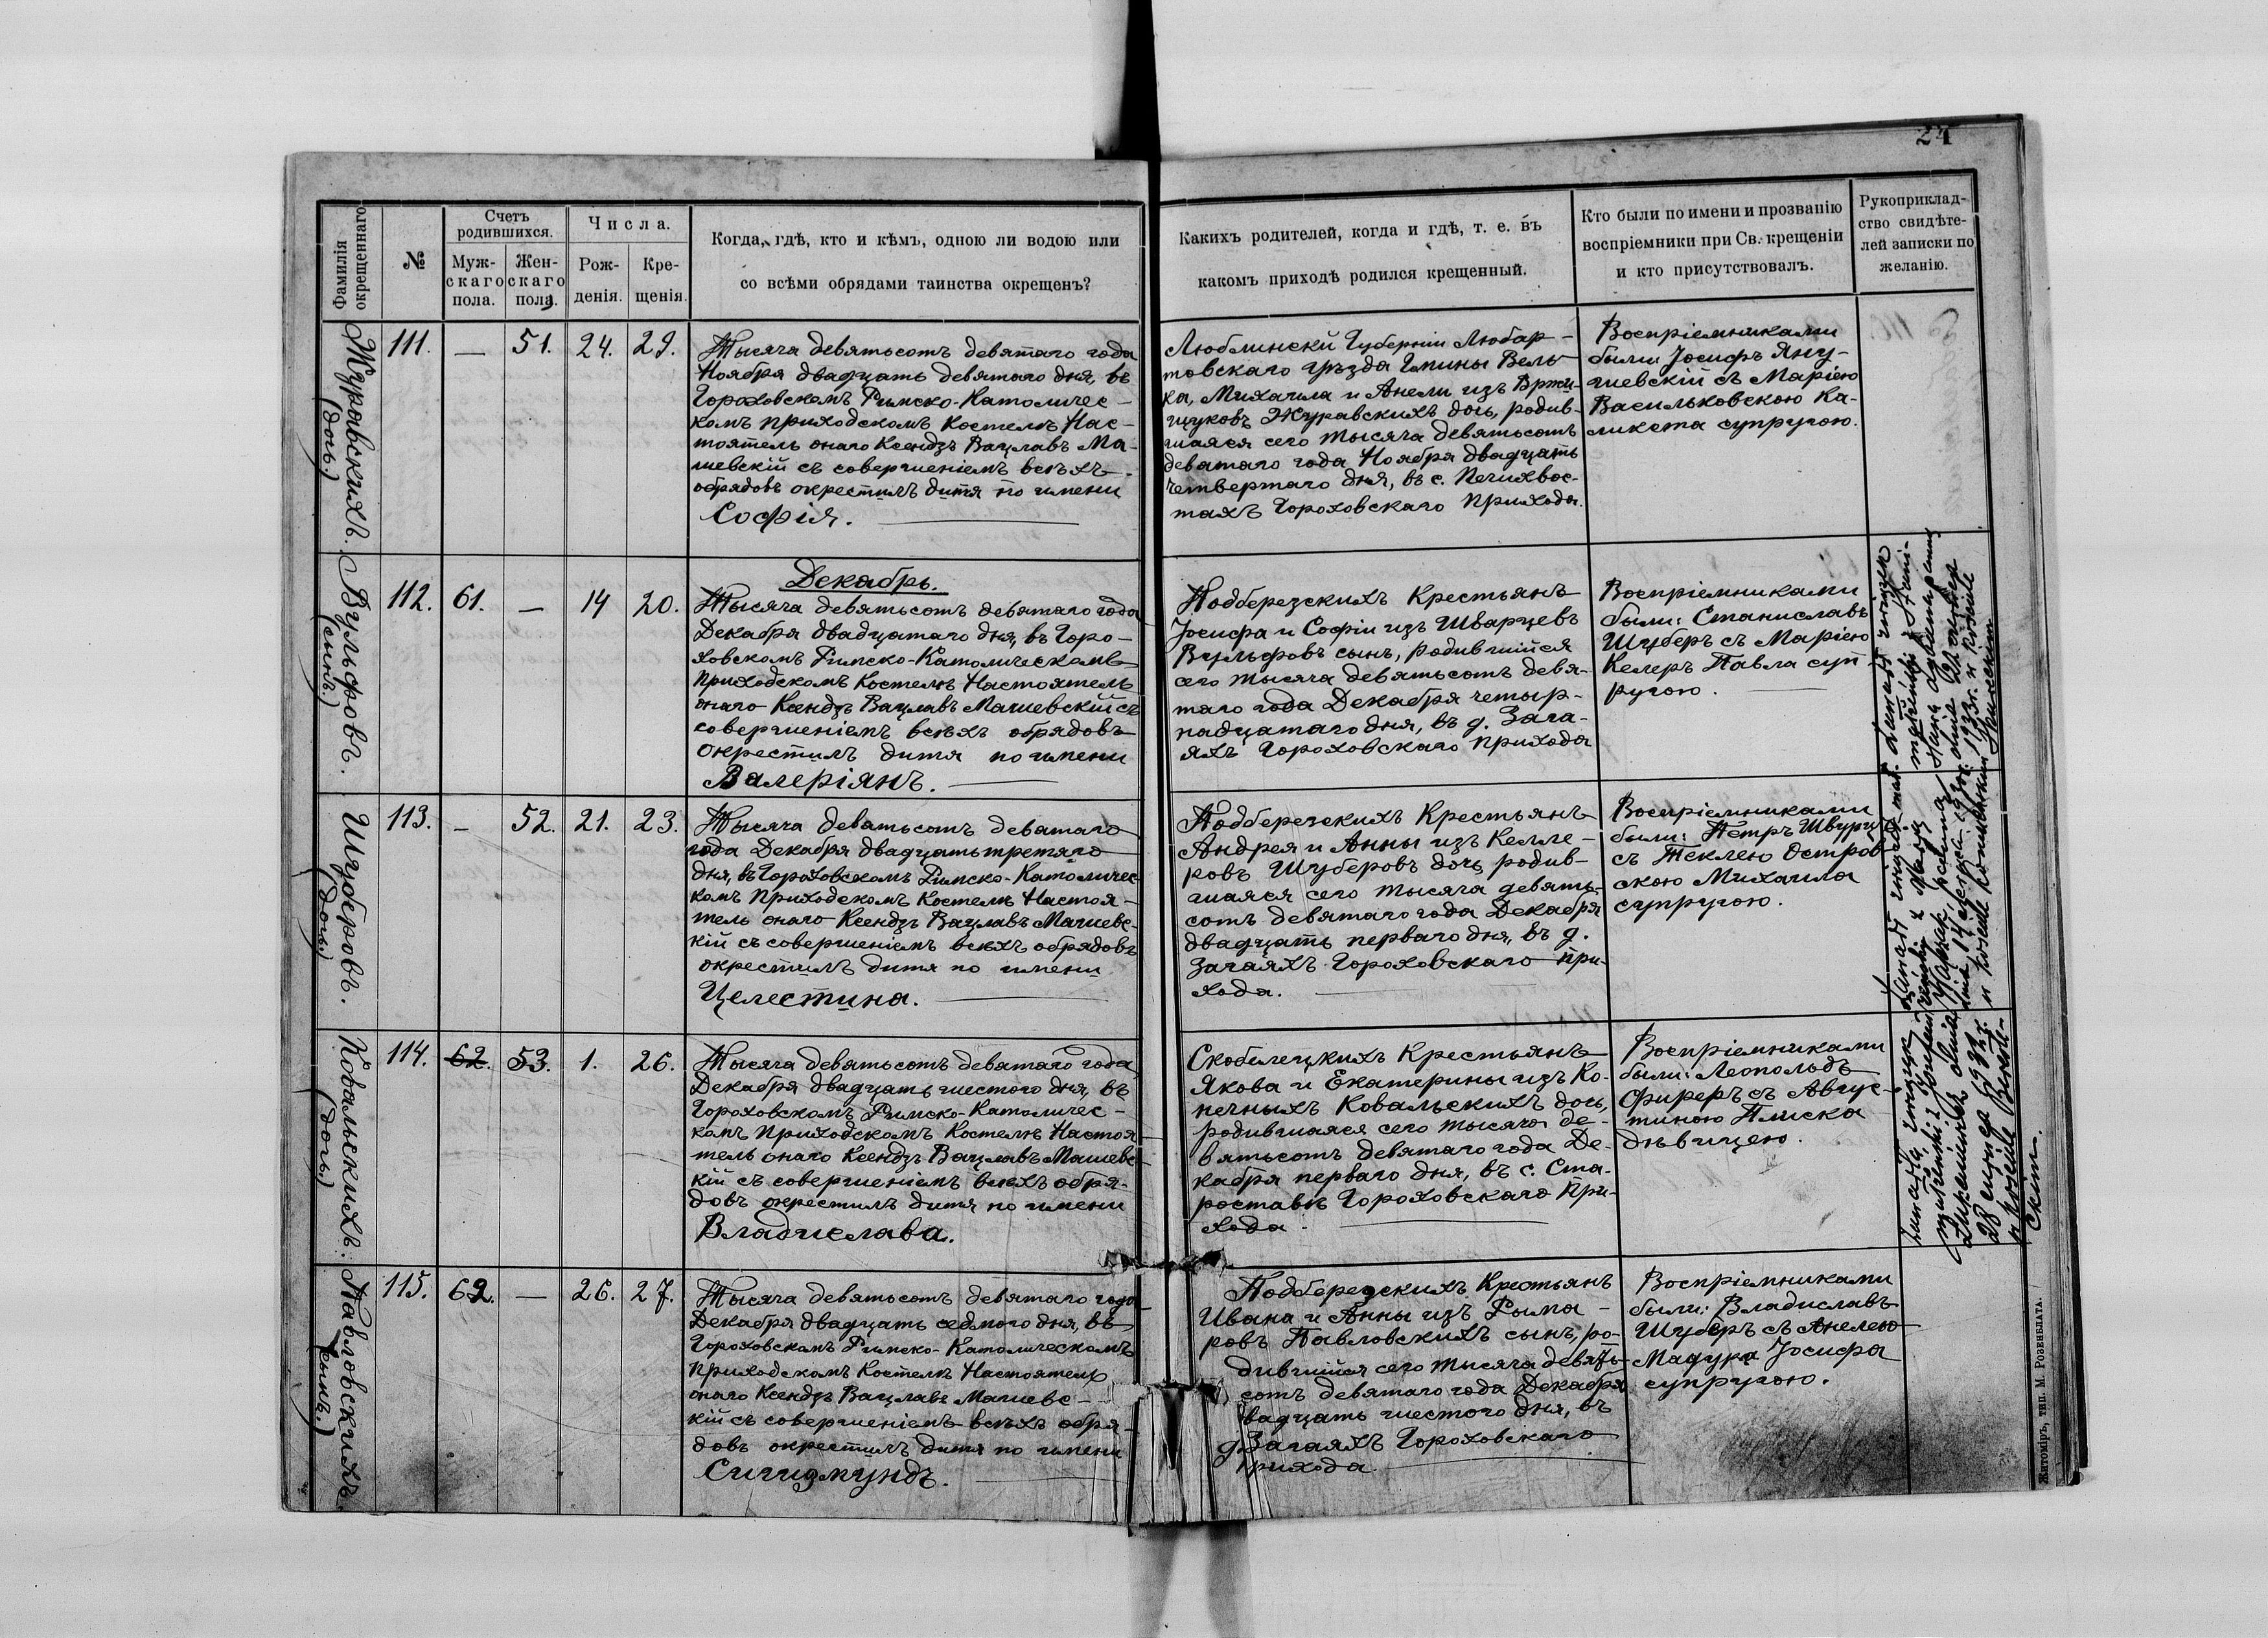 24
Фамилія
окрещеннаго
№
Счетъ
родившихся.
Муж-
скаго
пола.
Жен-
скаго
пола.
Числа.
Рож-
денія.
Кре-
щенія.
Когда, гдѣ, кто и кѣмъ, одною ли водою или
со всѣми обрядами таинства окрещенъ?
Какихъ родителей, когда и гдѣ, т. е. въ
какомъ приходѣ родился крещенный.
Кто были по имени и прозванію
воспріемники при Св. крещеніи
и кто присутствовалъ.
Рукоприклад-
ство свидѣте-
лей записки по
желанію.
Журавскихъ.
(дочь)
111.
—
51.
24.
29.
Тысяча девятьсотъ девятаго года
Ноября двадцать девятаго дня, въ
Гороховскомъ Римско-Католичес-
комъ приходскомъ Костелѣ Нас-
тоятель онаго Ксендзъ Вацлавъ Ма-
шевскій съ совершеніемъ всѣхъ
обрядовъ окрестилъ дитя по имени
Софія.
Люблинскй Губерніи Любар-
товскаго уѣзда Гмины Вель-
ка, Михаила и Анели изъ Вржи-
щуковъ Журавскихъ дочь, родив-
шаяся сего тысяча девятьсотъ
девятаго года Ноября двадцать
четвертаго дня, въ с. Печихвос-
тахъ Гороховскаго прихода.
Воспріемниками
были Іосифъ Яну-
шевскій съ Маріею
Васильковскою Ка-
ликста супругою.
Вульфовъ.
(сынъ)
112.
61.
—
14
20.
Декабрь.
Тысяча девятьсотъ девятаго года
Декабря двадцатаго дня, въ Горо-
ховскомъ Римско-Католическомъ
приходскомъ Костелѣ Настоятель
онаго Ксендзъ Вацлавъ Машевскій съ
совершеніемъ всѣхъ обрядовъ
окрестилъ дитя по имени
Валеріянъ.
Подберезскихъ Крестьянъ
Іосифа и Софіи изъ Шварцевъ
Вульфовъ сынъ, родившійся
сего тысяча девятьсотъ девя-
таго года Декабря четыр-
надцатаго дня, въ д. Зага-
яхъ Гороховскаго прихода
Воспріемниками
были: Станиславъ
Шуберъ съ Маріею
Келеръ Павла суп
ругою.
Шуберовъ.
(дочь)
113.
—
52.
21.
23.
Тысяча девятьсотъ девятаго
года Декабря двадцать третяго
дня, въ Гороховскомъ Римско-Католичес-
комъ приходскомъ Костелѣ Настоя-
тель онаго Ксендзъ Вацлавъ Машевс-
кій съ совершеніемъ всѣхъ обрядовъ
окрестилъ дитя по имени
Целестина.
Подберезскихъ Крестьянъ
Андрея и Анны изъ Келле-
ровъ Шуберовъ дочь родив-
шаяся сего тысяча девять-
сотъ девятаго года Декабря
двадцать перваго дня, въ д.
Загаяхъ Гороховскаго при-
хода.
Воспріемниками
были: Петръ Швурцъ
съ Теклею Остров
скою Михаила
супругою.
Ковальскихъ.
(дочь)
114.
62.
53.
1.
26.
Тысяча девятьсотъ девятаго года
Декабря двадцать шестого дня, въ
Гороховскомъ Римско-Католичес-
комъ приходскомъ Костелѣ Настоя
тель онаго Ксендзъ Вацлавъ Машевс-
кій съ совершеніемъ всѣхъ обря-
довъ окрестилъ дитя по имени
Владислава.
Скобелецкихъ Крестьянъ
Якова и Екатерины изъ Ко-
печныхъ Ковальскихъ дочь,
родившаяся сего тысяча де-
вятьсотъ девятаго года Де-
кабря перваго дня, въ с. Ста-
роставѣ Гороховскаго При-
хода.
Воспріемниками
были: Леопольдъ
Фиреръ съ Авгус-
тиною Плиска
дѣвицею.
Павловскихъ.
(сынъ.)
115.
62.
—
26.
27.
Тысяча девятьсотъ девятаго года
Декабря двадцать седмого дня, въ
Гороховскомъ Римско-Католическомъ
приходскомъ Костелѣ Настоятель
онаго Ксендзъ Вацлавъ Машевс-
кій съ совершеніемъ всѣхъ обря-
довъ окрестилъ дитя по имени
Сигизмундъ.
Подберезскихъ Крестьянъ
Ивана и Анны изъ Рыма-
ровъ Павловскихъ сынъ, ро-
дившійся сего тысяча девять-
сотъ девятаго года Декабря
двадцать шестого дня, въ
д. Загаяхъ Гороховскаго
прихода
Воспріемниками
были: Владиславъ
Шуберъ съ Анелею
Мадура Іосифа
супругою.
związek
małżeński z
28 1932 r.
w kościele
skim.
Житоміръ, тип. М. Розенблата.